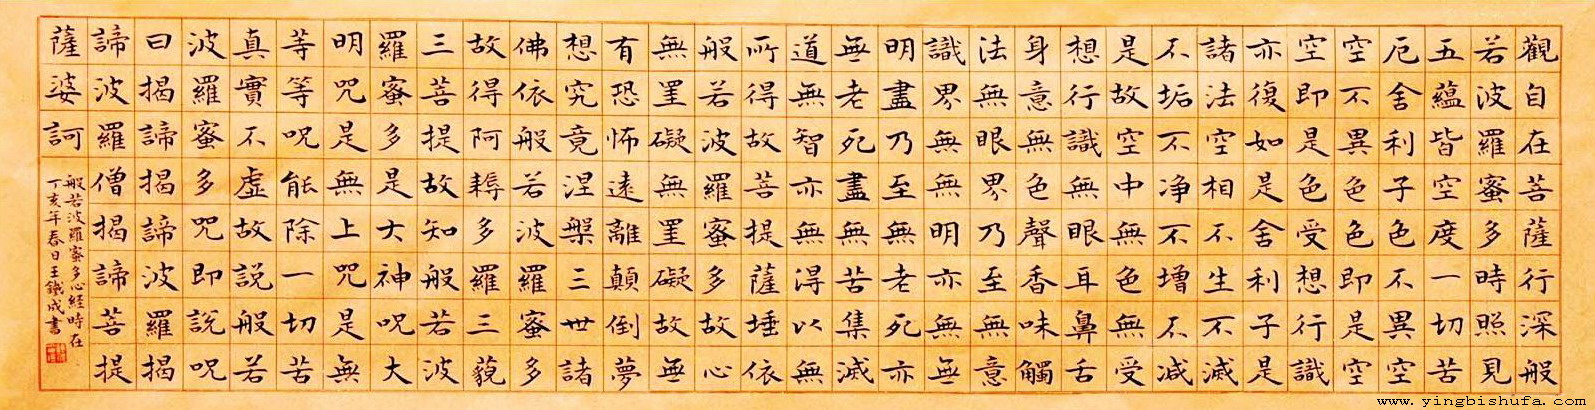 觀自在菩薩行深般
若波羅蜜多時照見
五蘊皆空度一切苦
厄舍利子色不異空
空不異色色即是空
空即是色受想行識
亦復如是舍利子是
諸法空相不生不滅
不垢不净不增不減
是故空中無色無受
想行識無眼耳鼻舌
身意無色聲香味觸
法無眼界乃至無意
識界無無明亦無無
明盡乃至無老死亦
無老死盡無苦集滅
道無智亦無得以無
所得故菩提薩埵依
般若波羅蜜多故心
無罣礙無罣礙故無
有恐怖遠離顛倒夢
想究竟涅槃三世諸
佛依般若波羅蜜多
故得阿耨多羅三藐
三菩提故知般若波
羅蜜多是大神咒大
明咒是無上咒是無
等等呪能除一切苦
真實不虛故說般若
波羅蜜多咒即說呪
曰揭諦揭諦波羅揭
諦波羅僧揭諦菩提
薩婆訶
般若波羅蜜多心經時在
丁亥年春日王鐵成書
www.yingbishufa.com